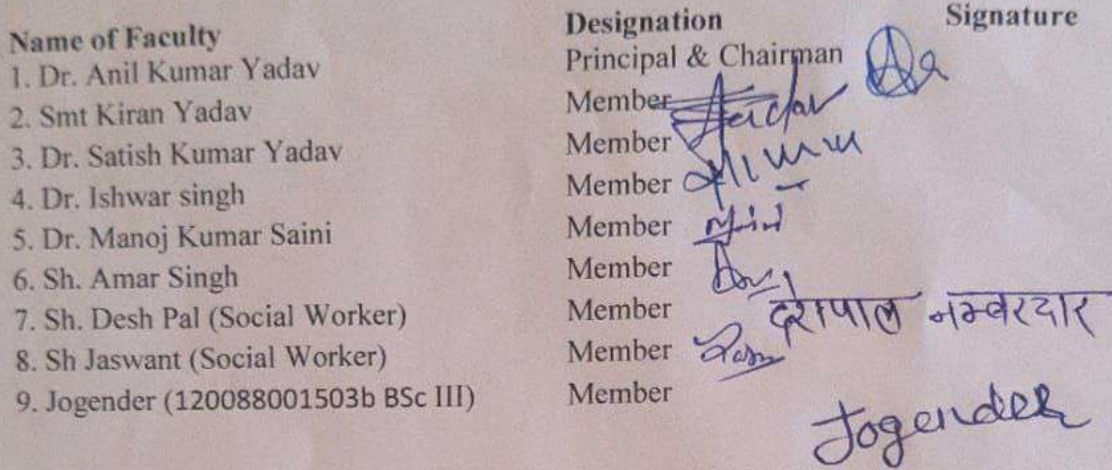 Name of Faculty Designation Signature
1. Dr. Anil Kumar Yadav Principal & Chairman
2. Smt Kiran Yadav Member
3. Dr. Satish Kumar Yadav Member
4. Dr. Ishwar singh Member
5. Dr. Manoj Kumar Saini Member
6. Sh. Amar Singh Member
7. Sh. Desh Pal (Social Worker) Member देशपाल नम्बरदार
8. Sh Jaswant (Social Worker) Member
9. Jogender (120088001503b BSc III) Member
Jogender